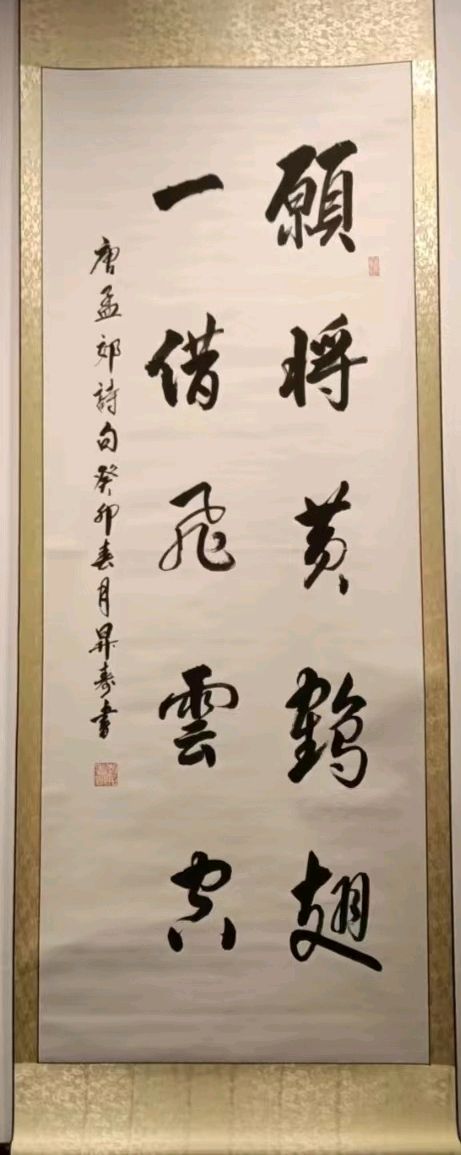 願將黃鶴翅
一借飛雲空
唐孟郊詩句癸卯春月昇壽書